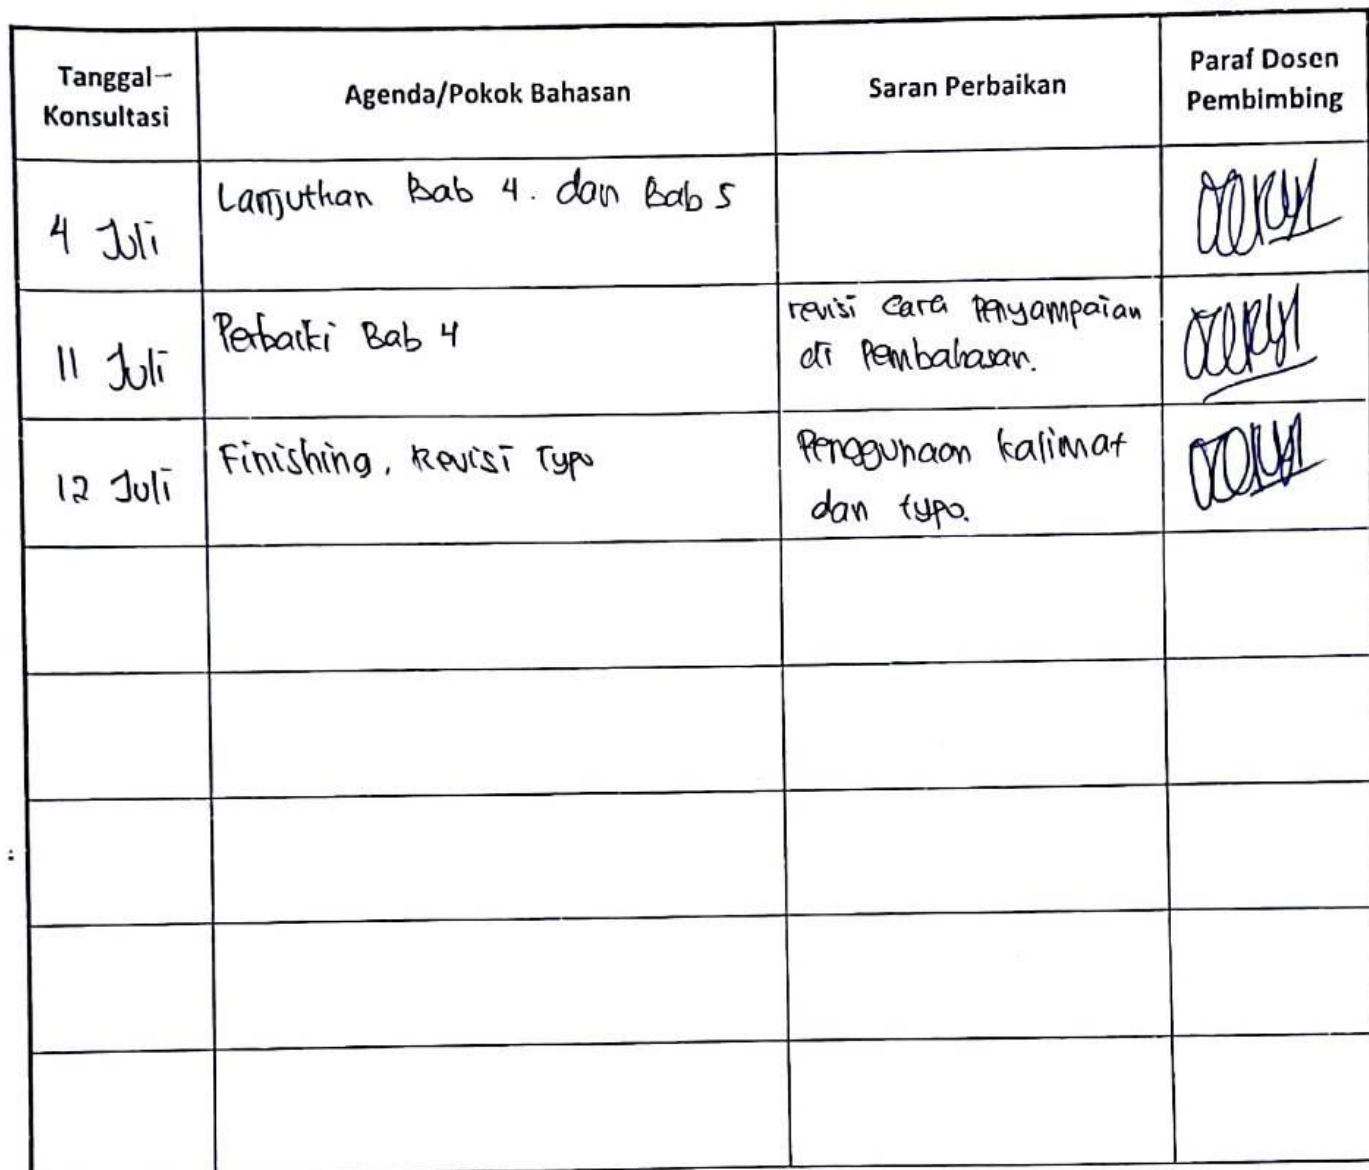 Tanggal-
Konsultasi
Agenda/Pokok Bahasan
Saran Perbaikan
Paraf Dosen
Pembimbing
4 Juli
Lanjutkan Bab 4. dan Bab 5
11 Juli
Perbaiki Bab 4
revisi cara Penyampaian
di Pembahasan.
12 Juli
Finishing, Revisi Typo
Penggunaan kalimat
dan typo.